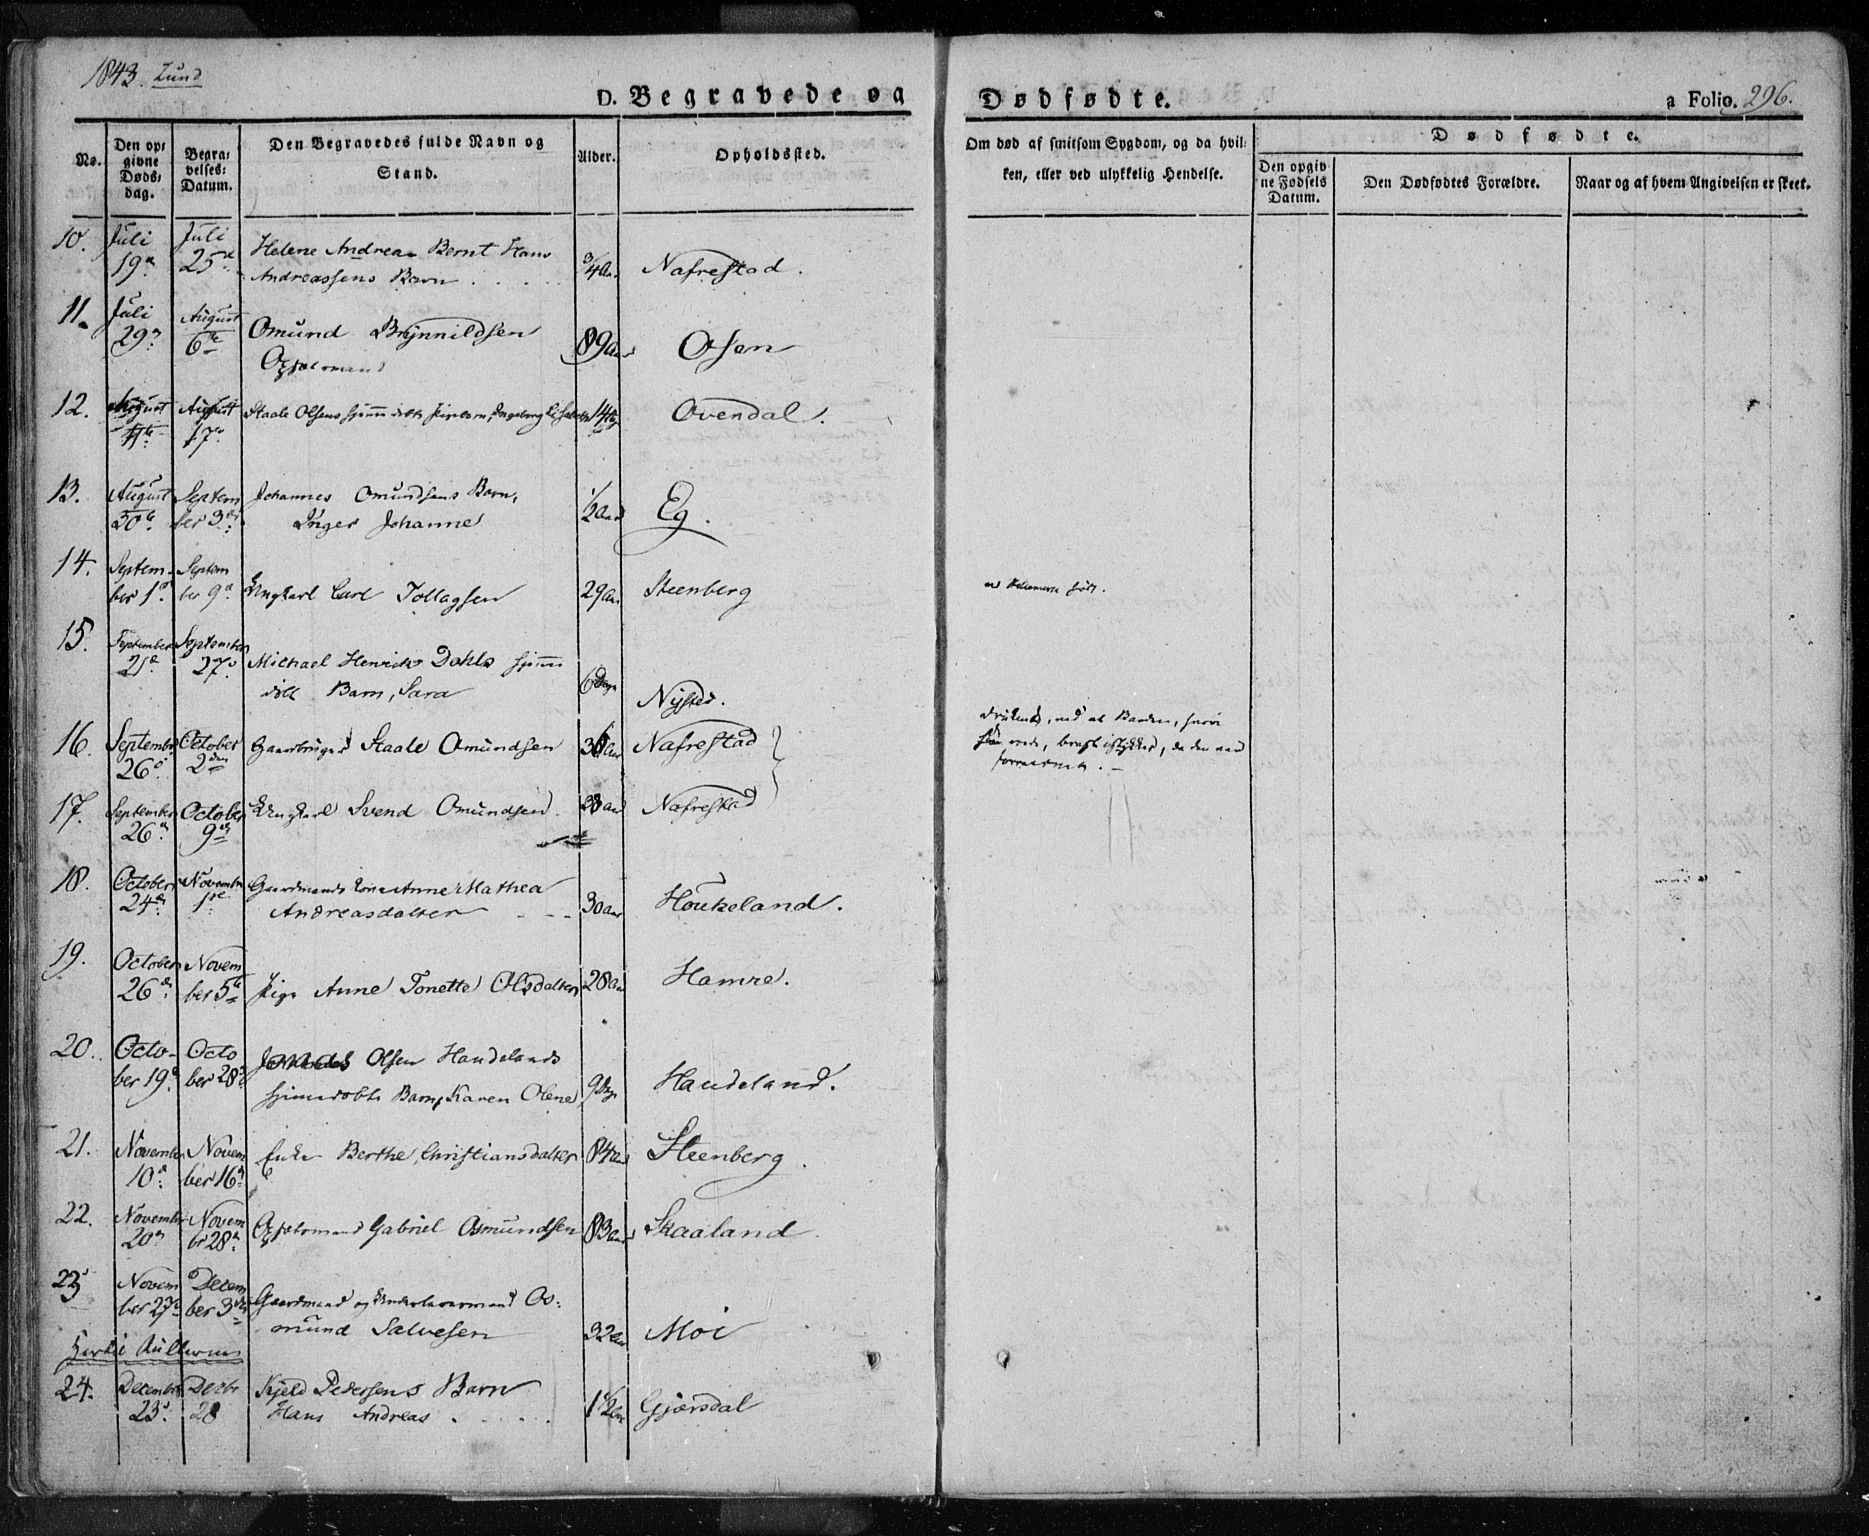 1843. Lund
D. Begravede og Dødfødte. a Folio. 296.
No. Den opgivne Døds: dag. Begravelses: Datum. Den Begravedes fulde Navn og Stand. Alder. Opholdssted.
Om død af smitsom Sygdom, og da hvilken, eller ved ulykkelig Hendelse.
Dødfødte.
Den opgivne Fødsels Datum. Den Dødfødtes Forældre. Naar og af hvem Angivelsen er skeet.
10. Juli 19de Juli 25de Helene Andrea Bernt Hans
Andreassens Barn 3/4 Aar Nafrestad.
11. Juli 29de August 6te Omund Brynnildsen 89 Aar Osen
12. August 11te August 17de Staale Olsens hjemmedøbte Pigebarn, Ingeborg Elisabeth 14 Dg Ovendal.
13. August 30te September 3die Johannes Omundsens Barn,
Inger Johanne 1/2 Aar Eg.
14. September 1ste September 9de Ungkarl Carl Tollagsen 29 Aar Steenberg
15. September 21de September 27de Michael Henrichs Dahls hjemmedøbt
Barn, Sara 6 Dage Nysted.
16. September 26de October 2den Gaardbruger Staale Omundsen 36 Aar Nafrestad
17. September 26de October 9de Ungkarl Svend Omundsen. Aar Nafrestad
18. October 24de November 1ste Gaardmands Kone Anne Mathea
Andreasdatter 30 Aar Houkeland.
19. October 26de November 5te Pige Anne Tonette Olsdatter 28 Aar Hamre.
20. October 19de October 28de Olsen Haudelands
hjemmedøbte Barn, Karen Olene 9 Dage Haudeland.
21. November 10de November 16de Enke Berthe Christiansdatter 84 Aar Steenberg.
22. November 20de November 28de Gabriel Osmundsen 83 Aar Skaaland
23 November 27de December 3die Gaardmand og Underlensmand Osmund
Salvesen 32 Aar Moi
24. December 23de Decbr 28 Kjeld Pedersens Barn
Hans Andreas 1 1/2 Aar Gjersdal